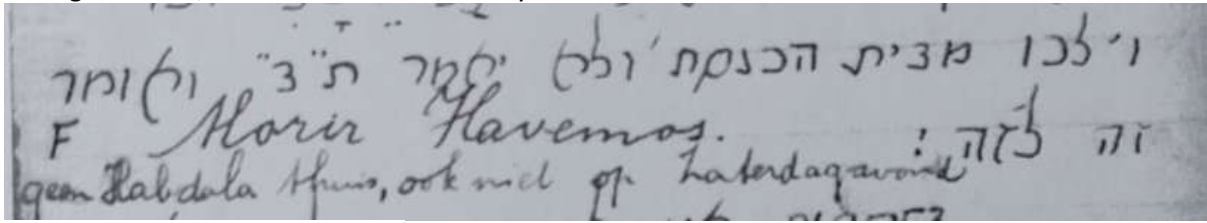 וילכו מבית הכנסת ולא יאמר ת״ב ואומר
זה לזה:
F Morir Havemos.
geen Habdala thuis, ook niet op Zaterdagavond